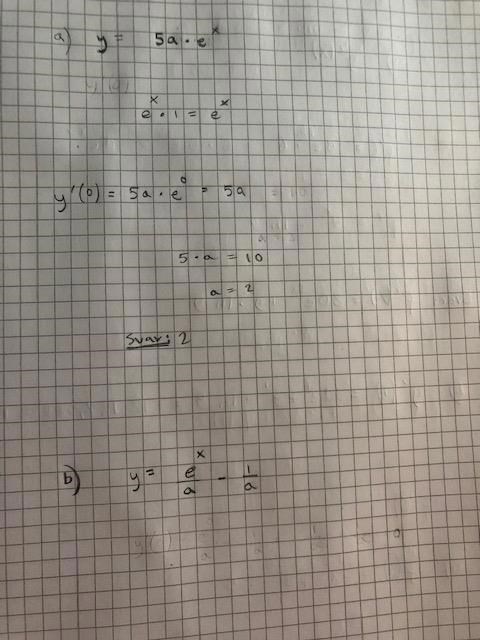 a) y = 5a · e^x
e^x · 1 = e^x
y'(0) = 5a · e^0 = 5a = 10
5 · a = 10
a = 2
Svar: 2
b) y = e^x/a - 1/a